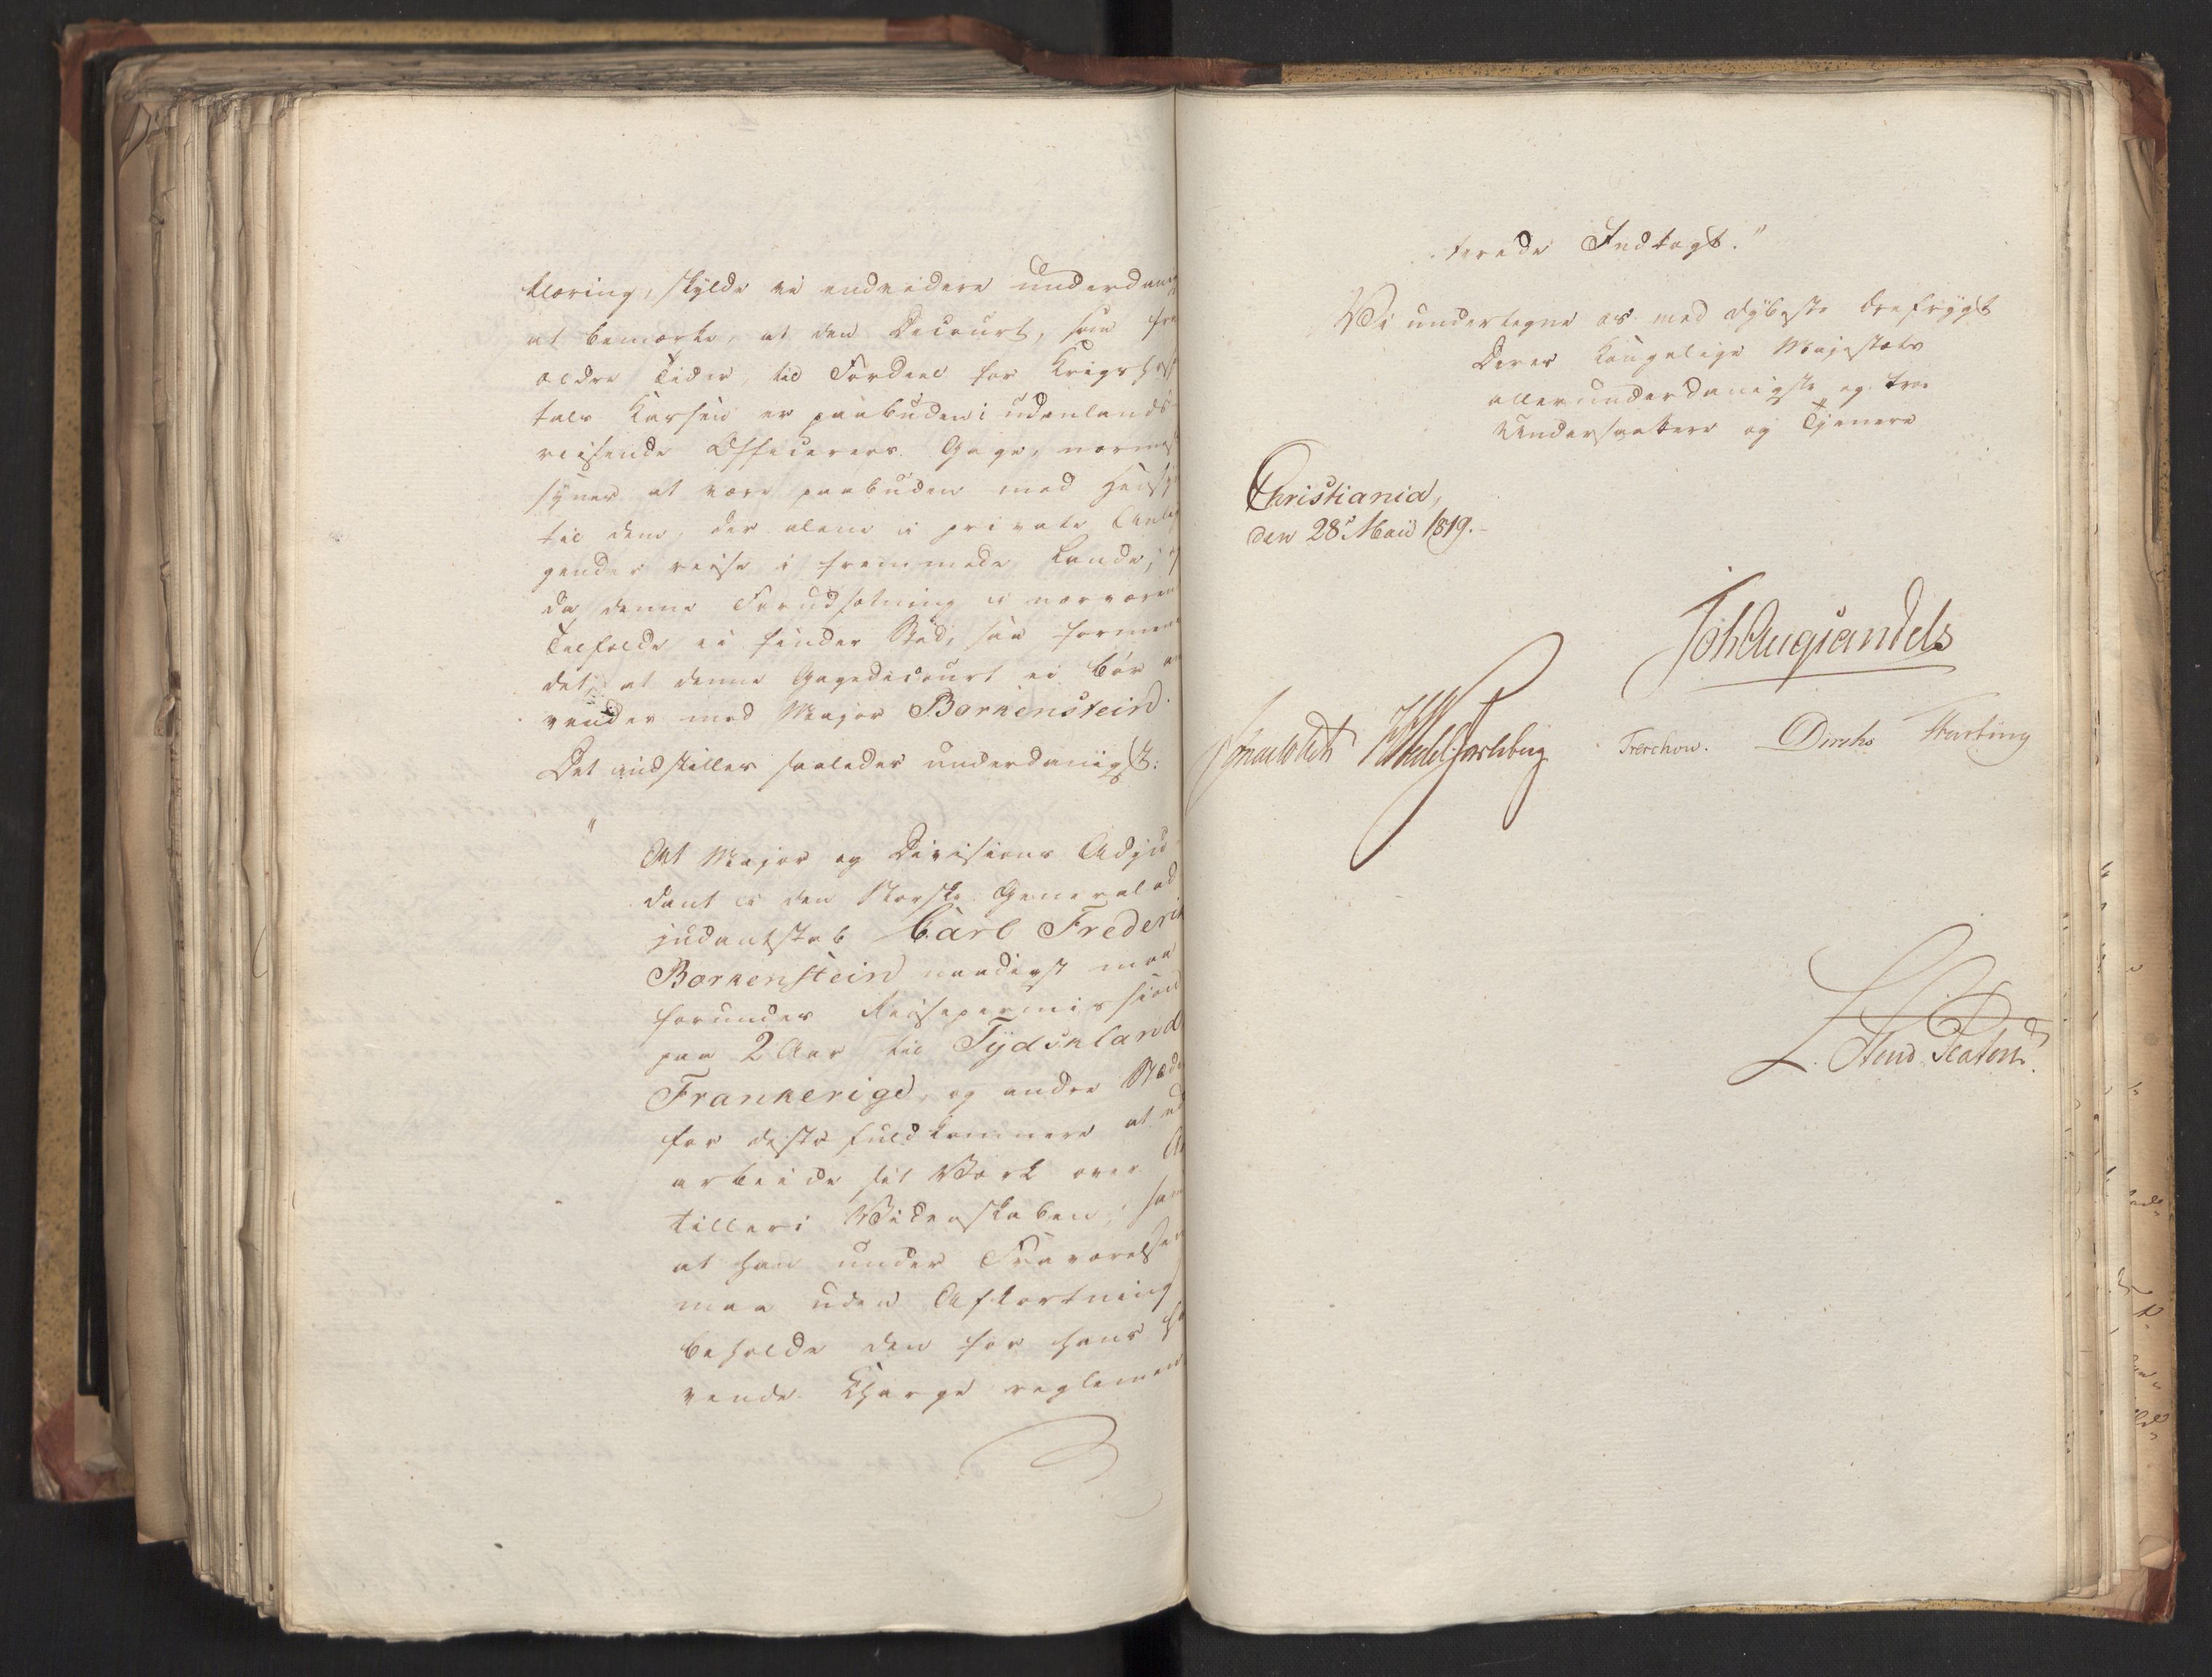 klæring, skylde vi endvidere underdan
at bemærke, at den Decourt, som fra
ældre Tider, til Fordeel for Krigshos
tals Kassen er paabuden i udenlands
reisende Officerers Gage, nærmest
synes at være paabuden med Hensyn
til dem, der alene i private Anlig
gender reise i fremmede Lande;
da denne Forudsætning i nærværen
Tilfælde ei finder Sted, saa formene
det, at denne Gagedecourt ei bør an
vendes med Major Borkenstein.
Det indstilles saaledes underdanigst:
" At Major og Divisions Adju
dant i den Norske Generalad
judantstab Carl Frederik
Borkenstein naadigst maa
forundes Reisepermission
paa 2 Aar til Tydskland
Frankerige, og andre Stæder
for desto fuldkomnere at ud
arbeide sit Værk over Ar
tilleri Videnskaben; samt
at han under Fraværelsen
maa uden Afkortning
beholde den for hans ha
vende Charge reglemen
terede Indtægt."
Vi undertegne os med dybeste Ærefrygt
Deres Kongelige Majestæts
allerunderdanigste og troe
Undersaatter og Tjenere
Christiania,
den 28de Maii 1819.
Joh Aug Sandels
Sommerhielm HWedel Jarlsberg Treschow. Diriks Fasting
L. Stoud Platou